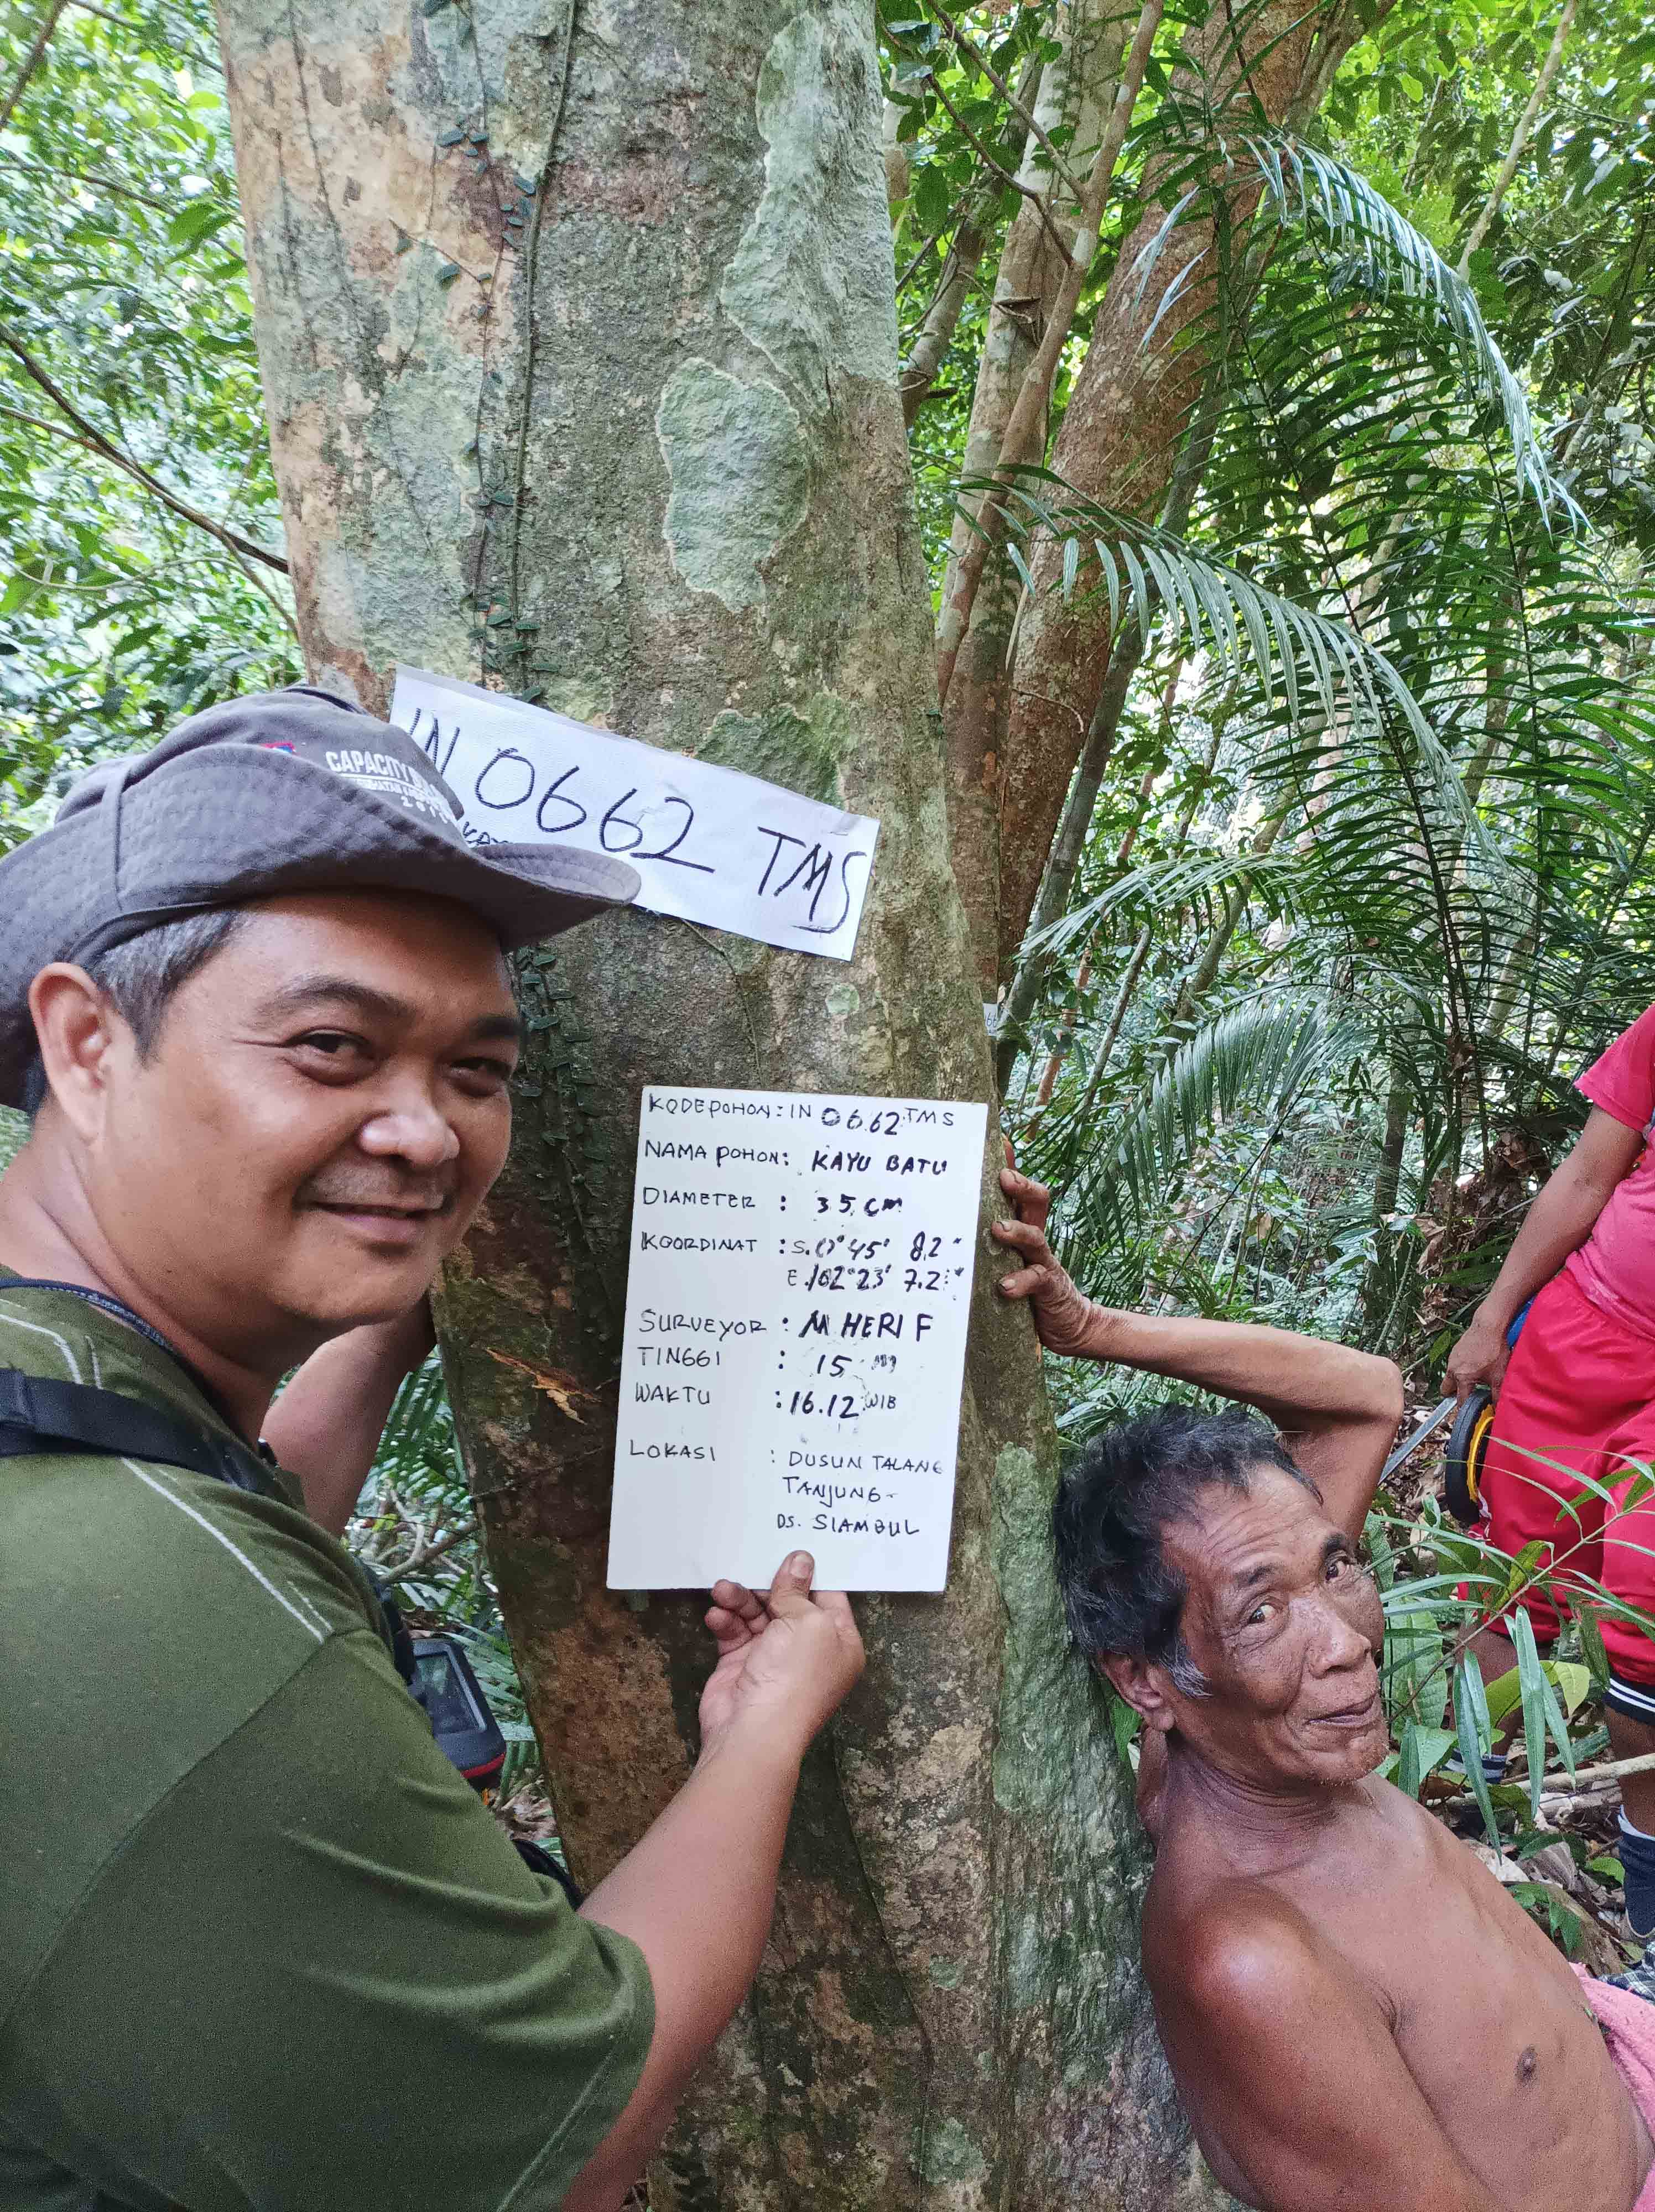 CAPACITY
IN 0662 TMS
KODE POHON : IN 0662 TMS
NAMA POHON : KAYU BATU
DIAMETER : 35 CM
KOORDINAT : S. 0° 45' 8.2"
E. 102° 23' 7.2"
SURVEYOR : M HERI F
TINGGI : 15 m
WAKTU : 16.12 WIB
LOKASI : DUSUN TALANG
TANJUNG
DS. SIAMBUL